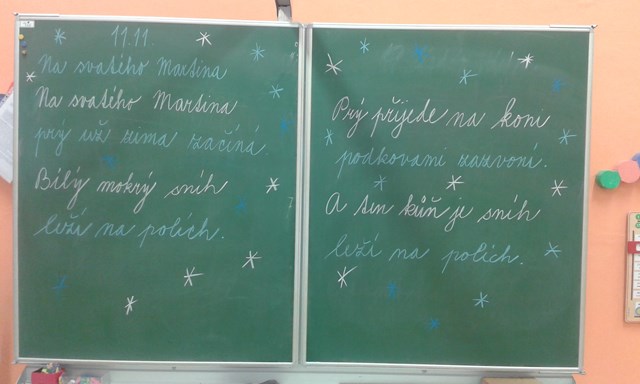 11.11.
Na svatého Martina
Na svatého Martina
prý už zima začíná.
Bílý mokrý sníh
leží na polích.
Prý přijede na koni
podkovami zazvoní.
A ten kůň je sníh
leží na polích.